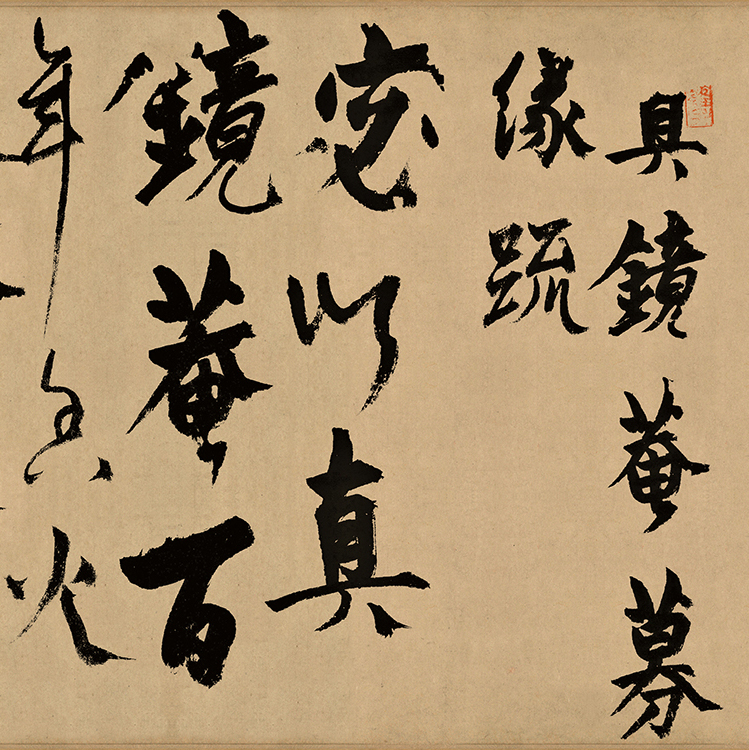 真鏡菴募
緣疏
竊以真
鏡菴百
年香火